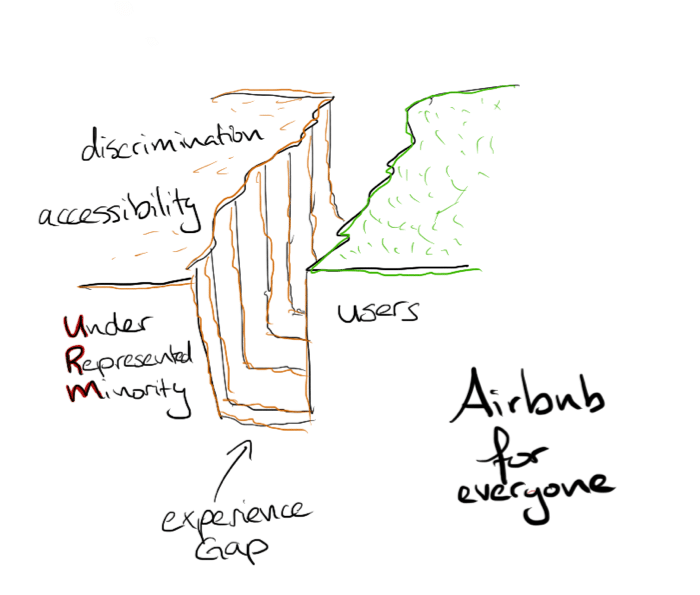 discrimination
accessibility
Under
Represented
Minority
users
experience
Gap
Airbnb
for
everyone